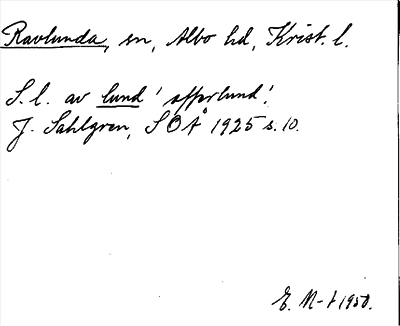 Ravlunda, sn, Albo hd, Krist. l.
S. l. av lund 'offerlund'.
J. Sahlgren, SOÅ 1925 s. 10.
E. M-t 1950.